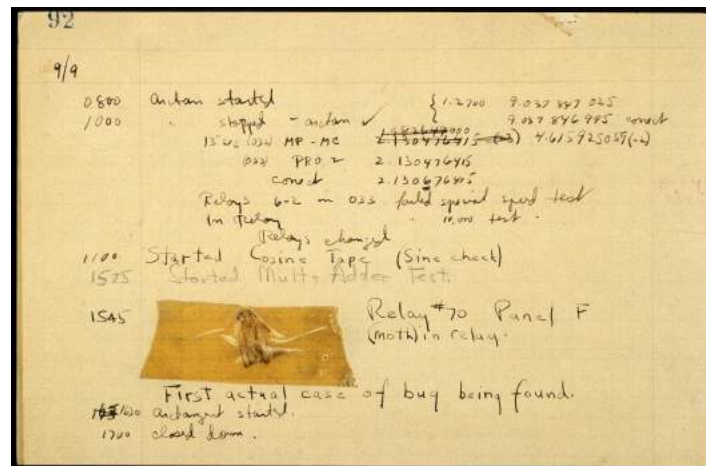 92
9/9
0800 Antan started
1000 " stopped - antan ✓ { 1.2700 9.037 847 025
9.037 846 995 correct
13"uc (032) MP - MC 2.130476415 4.615925059(-2)
(033) PRO 2 2.130476415
correct 2.130676415
Relays 6-2 in 033 failed special speed test
In Relay " 10,000 test "
Relays changed
1100 Started Cosine Tape (Sine check)
1525 Started Mult + Adder Test.
1545 Relay #70 Panel F
(moth) in relay.
First actual case of bug being found.
1630 antangent started.
1700 closed down.